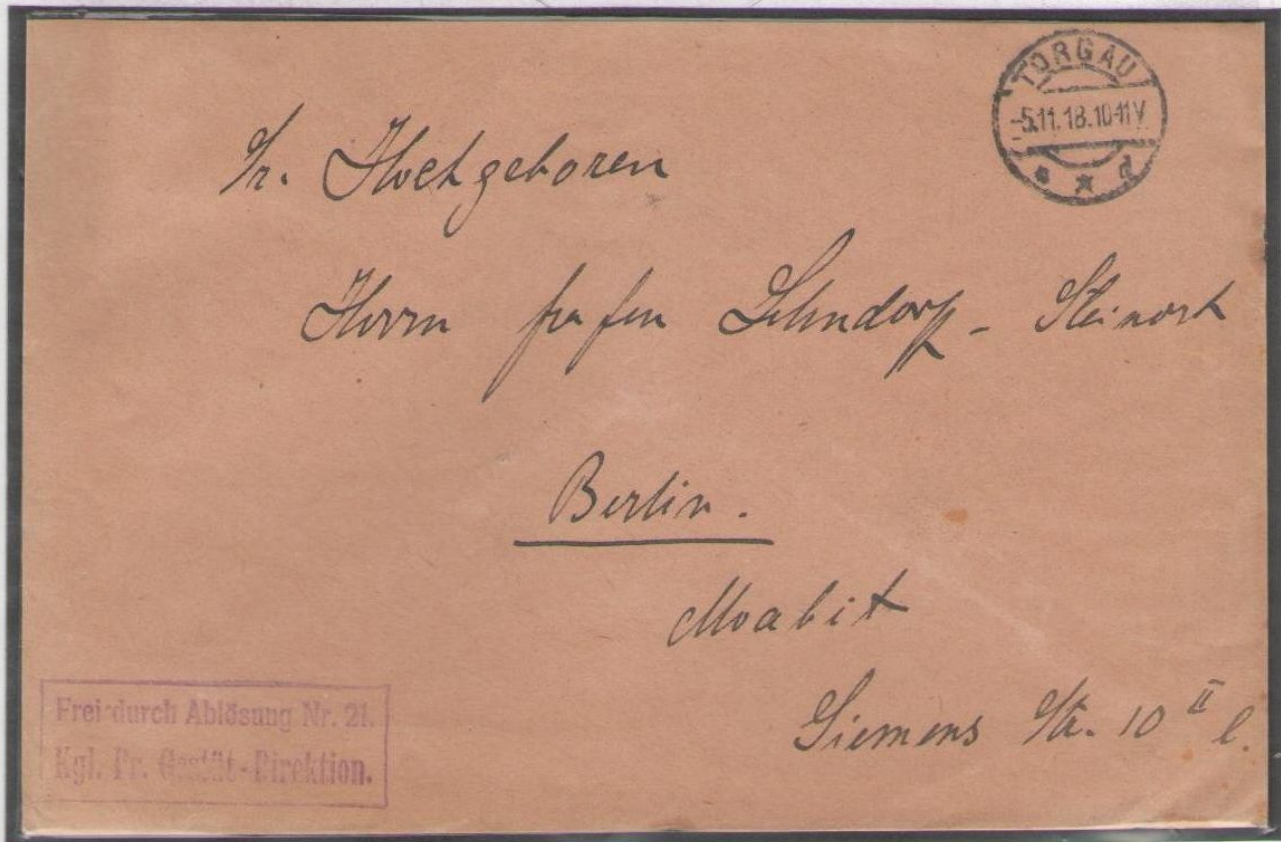 TORGAU
-5.11.18.10-11V
* * d
Sr. Hochgeboren
Herrn Grafen Lehndorff - Steinort
Berlin.
Moabit
Siemens Str. 10 II l.
Frei durch Ablösung Nr. 21.
Kgl. Pr. Gestüt-Direktion.